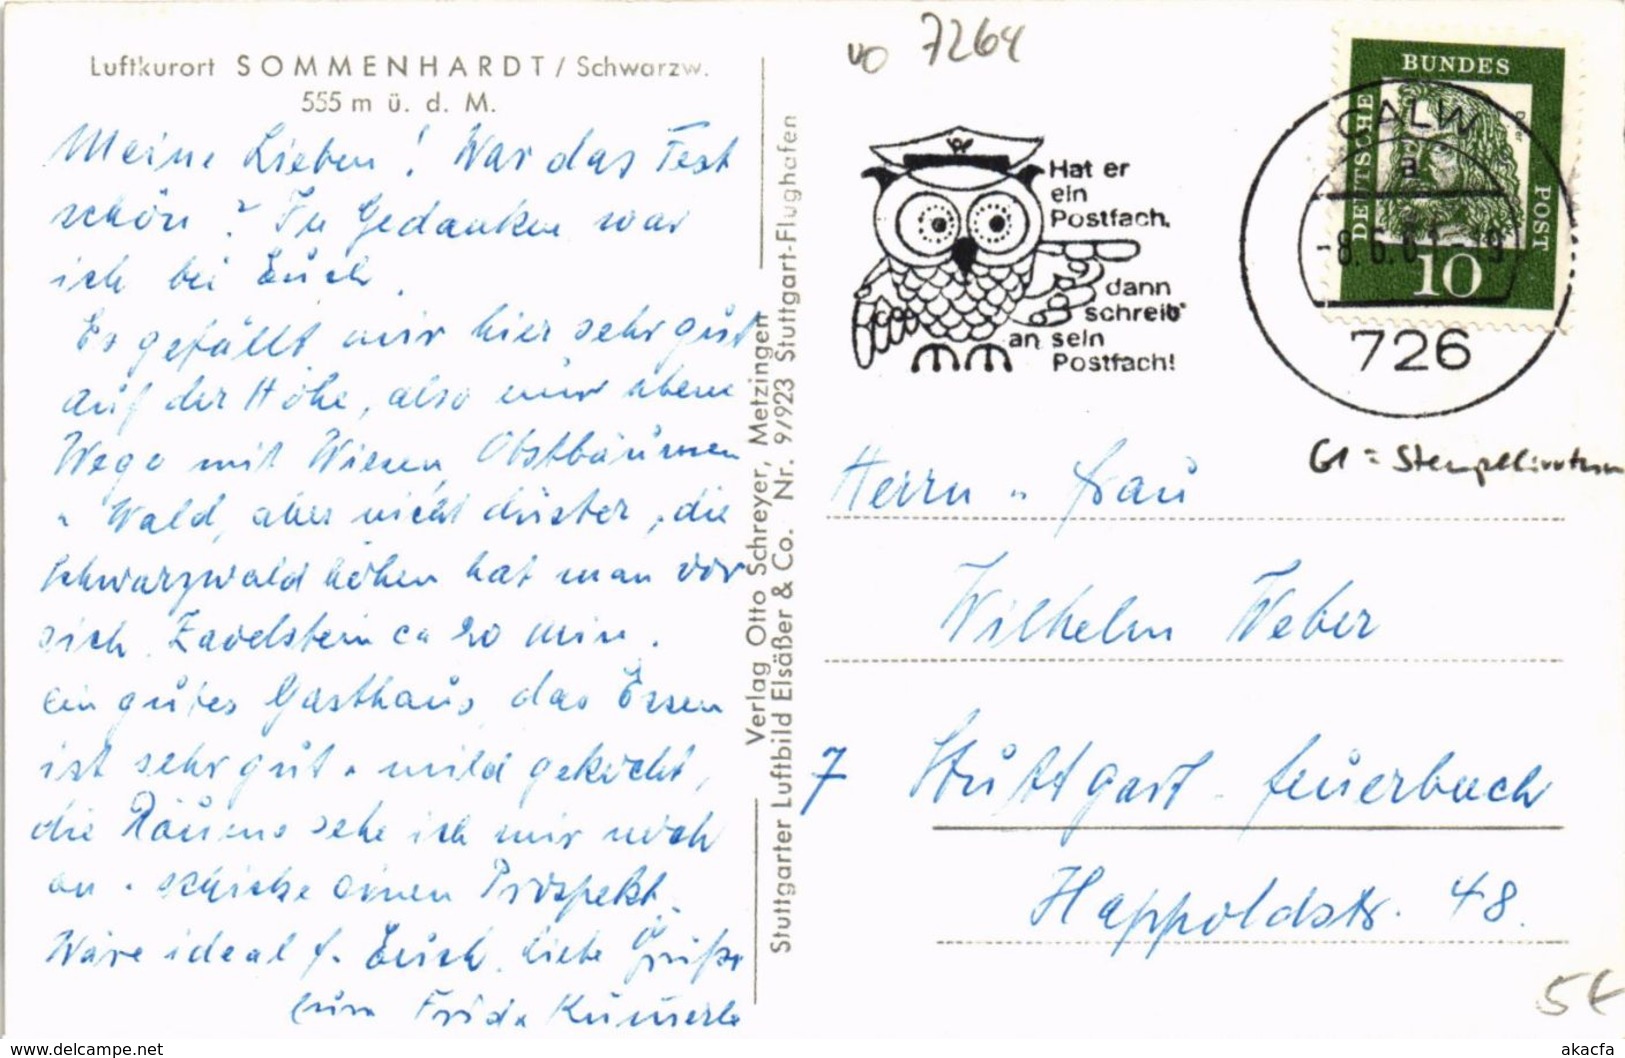 Luftkurort SOMMENHARDT / Schwarzw.
555 m ü. d. M.
Meine Lieben! War das Fest
schön? In Gedanken war
ich bei Euch.
Es gefällt mir hier sehr gut
auf der Höhe, also nur ebene
Wege mit Wiesen, Obstbäumen
u Wald, aber nicht düster, die
Schwarzwaldhöhen hat man vor
sich. Zavelstein ca 20 Min.
ein gutes Gasthaus, das Essen
ist sehr gut u. mild gekocht,
die Räume sehe ich mir noch
an u. schicke einen Prospekt.
Wäre ideal f. Euch. Liebe Grüße
Frida
Verlag Otto Schreyer, Metzingen
Stuttgarter Luftbild Elsäßer & Co. Nr. 9/923 Stuttgart-Flughafen
7264
Hat er
ein
Postfach,
dann
schreib'
an sein
Postfach!
DEUTSCHE
BUNDES
POST
10
CALW
a
726
Herrn u Frau
Wilhelm Weber
7 Stuttgart-Feuerbach
Happoldstr. 48.
5€
www.delcampe.net
akacfa